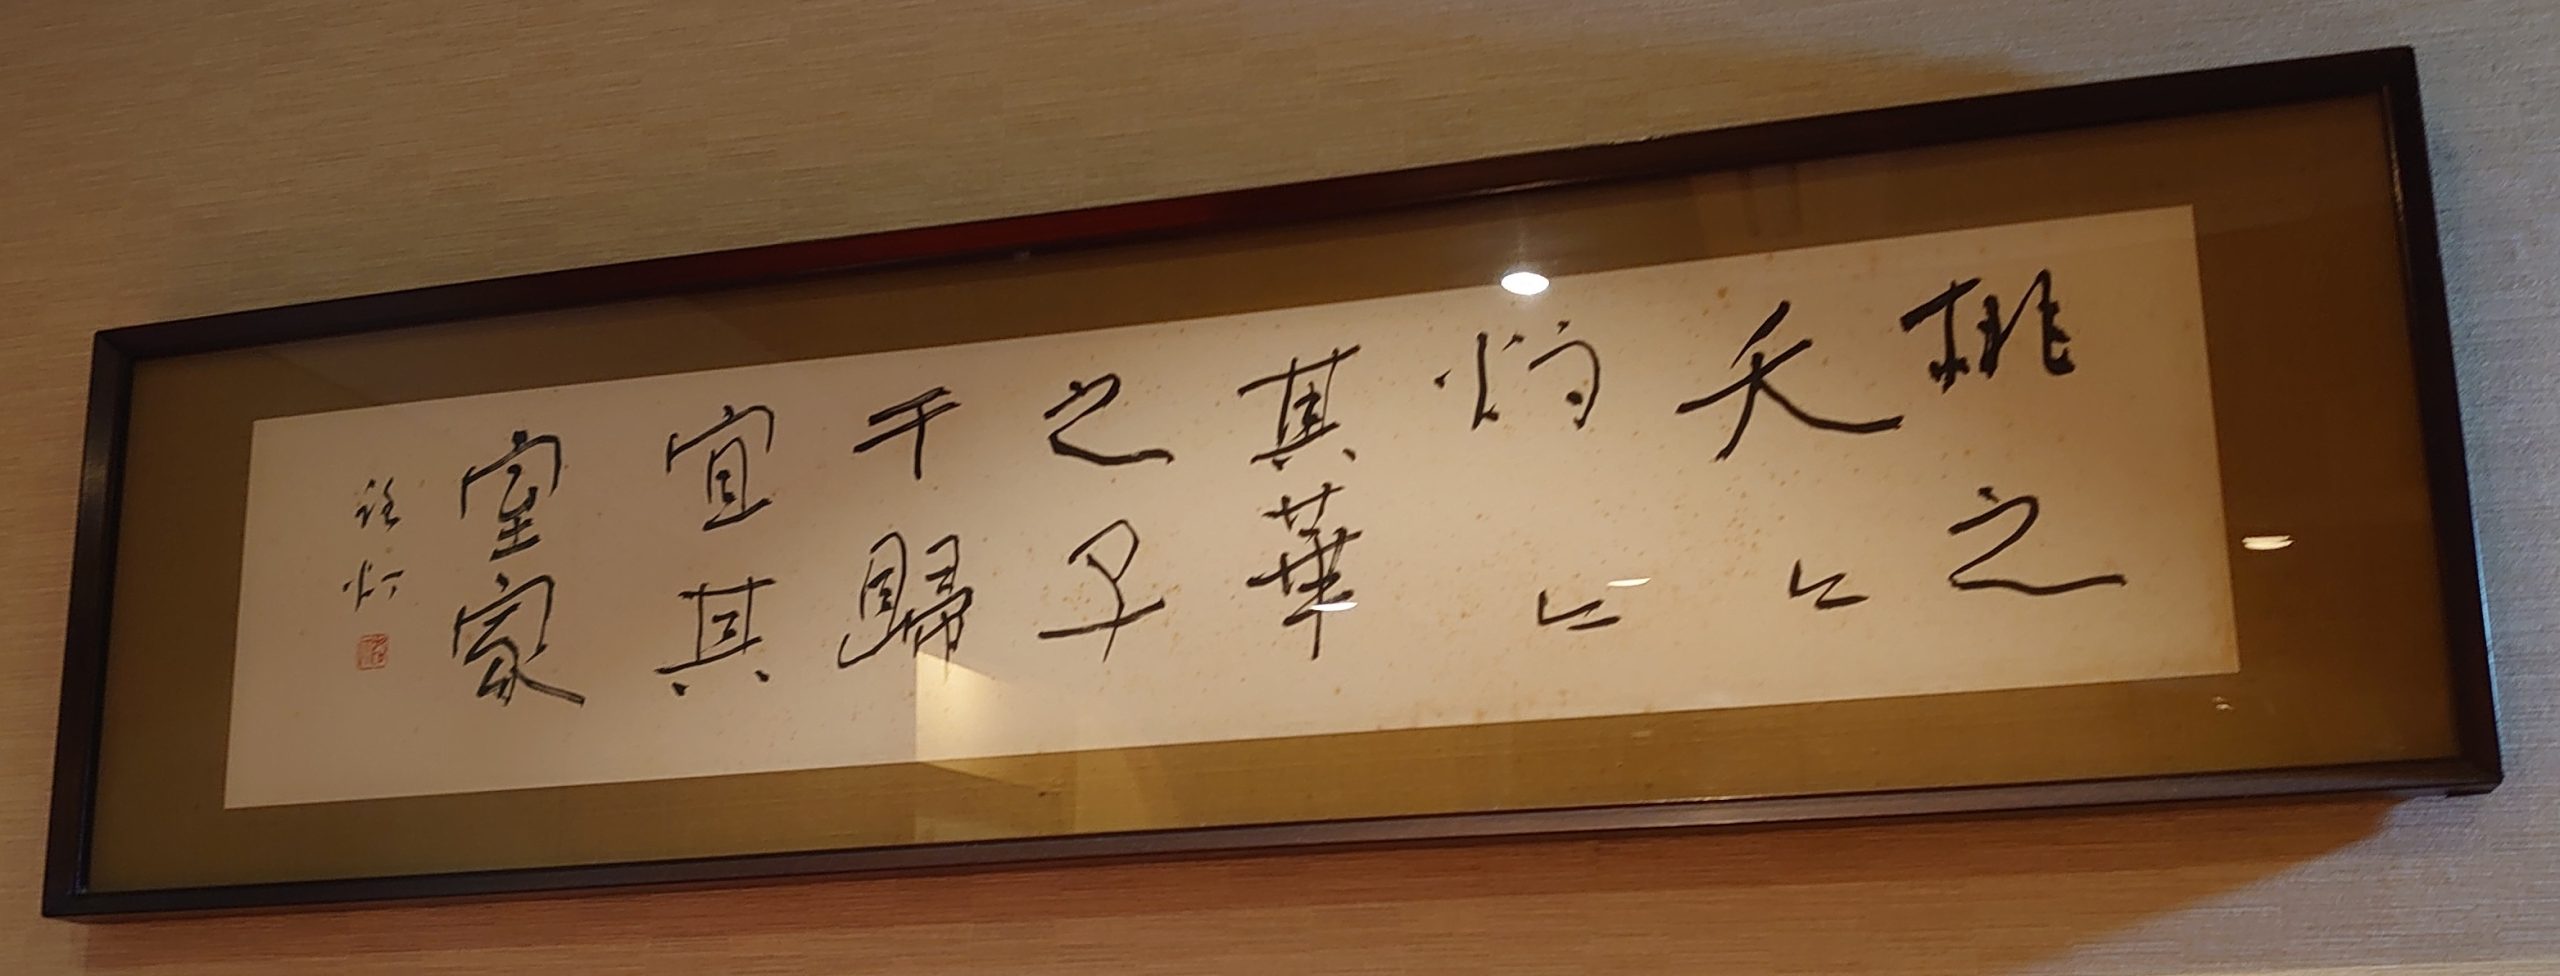 桃之
夭々
灼々
其華
之子
于歸
宜其
室家